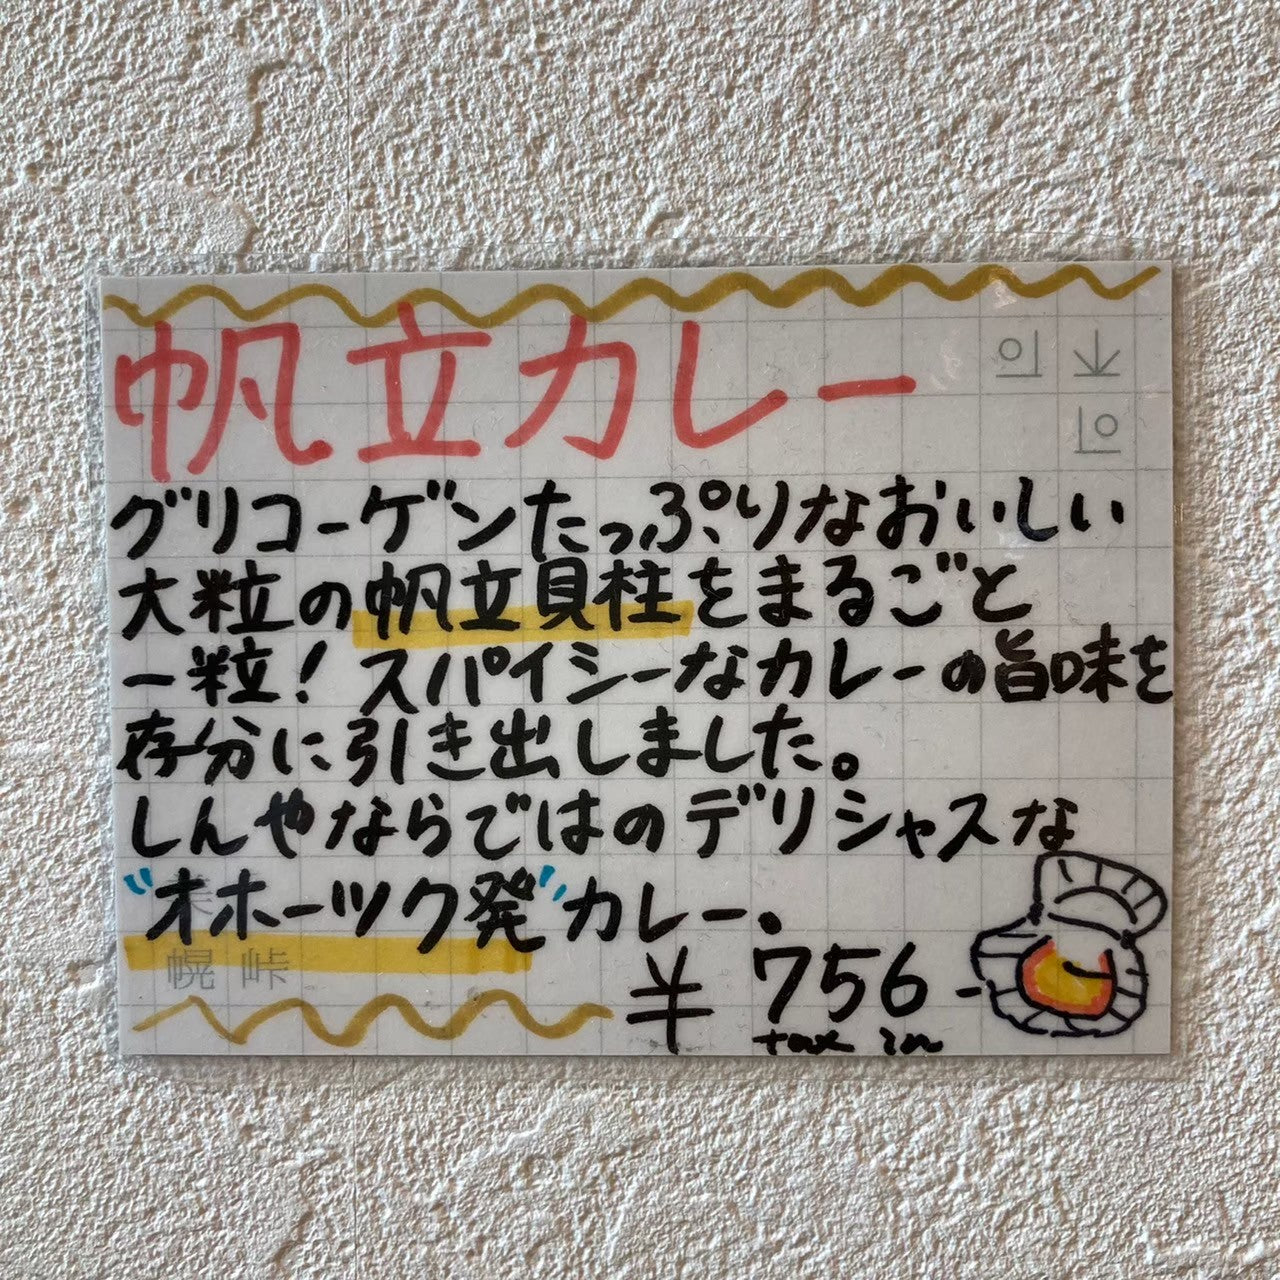 帆立カレー
グリコーゲンたっぷりなおいしい
大粒の帆立貝柱をまるごと
一粒！スパイシーなカレーの旨味を
存分に引き出しました。
しんやならではのデリシャスな
"オホーツク発"カレー。
￥756-
tax in
幌 峠